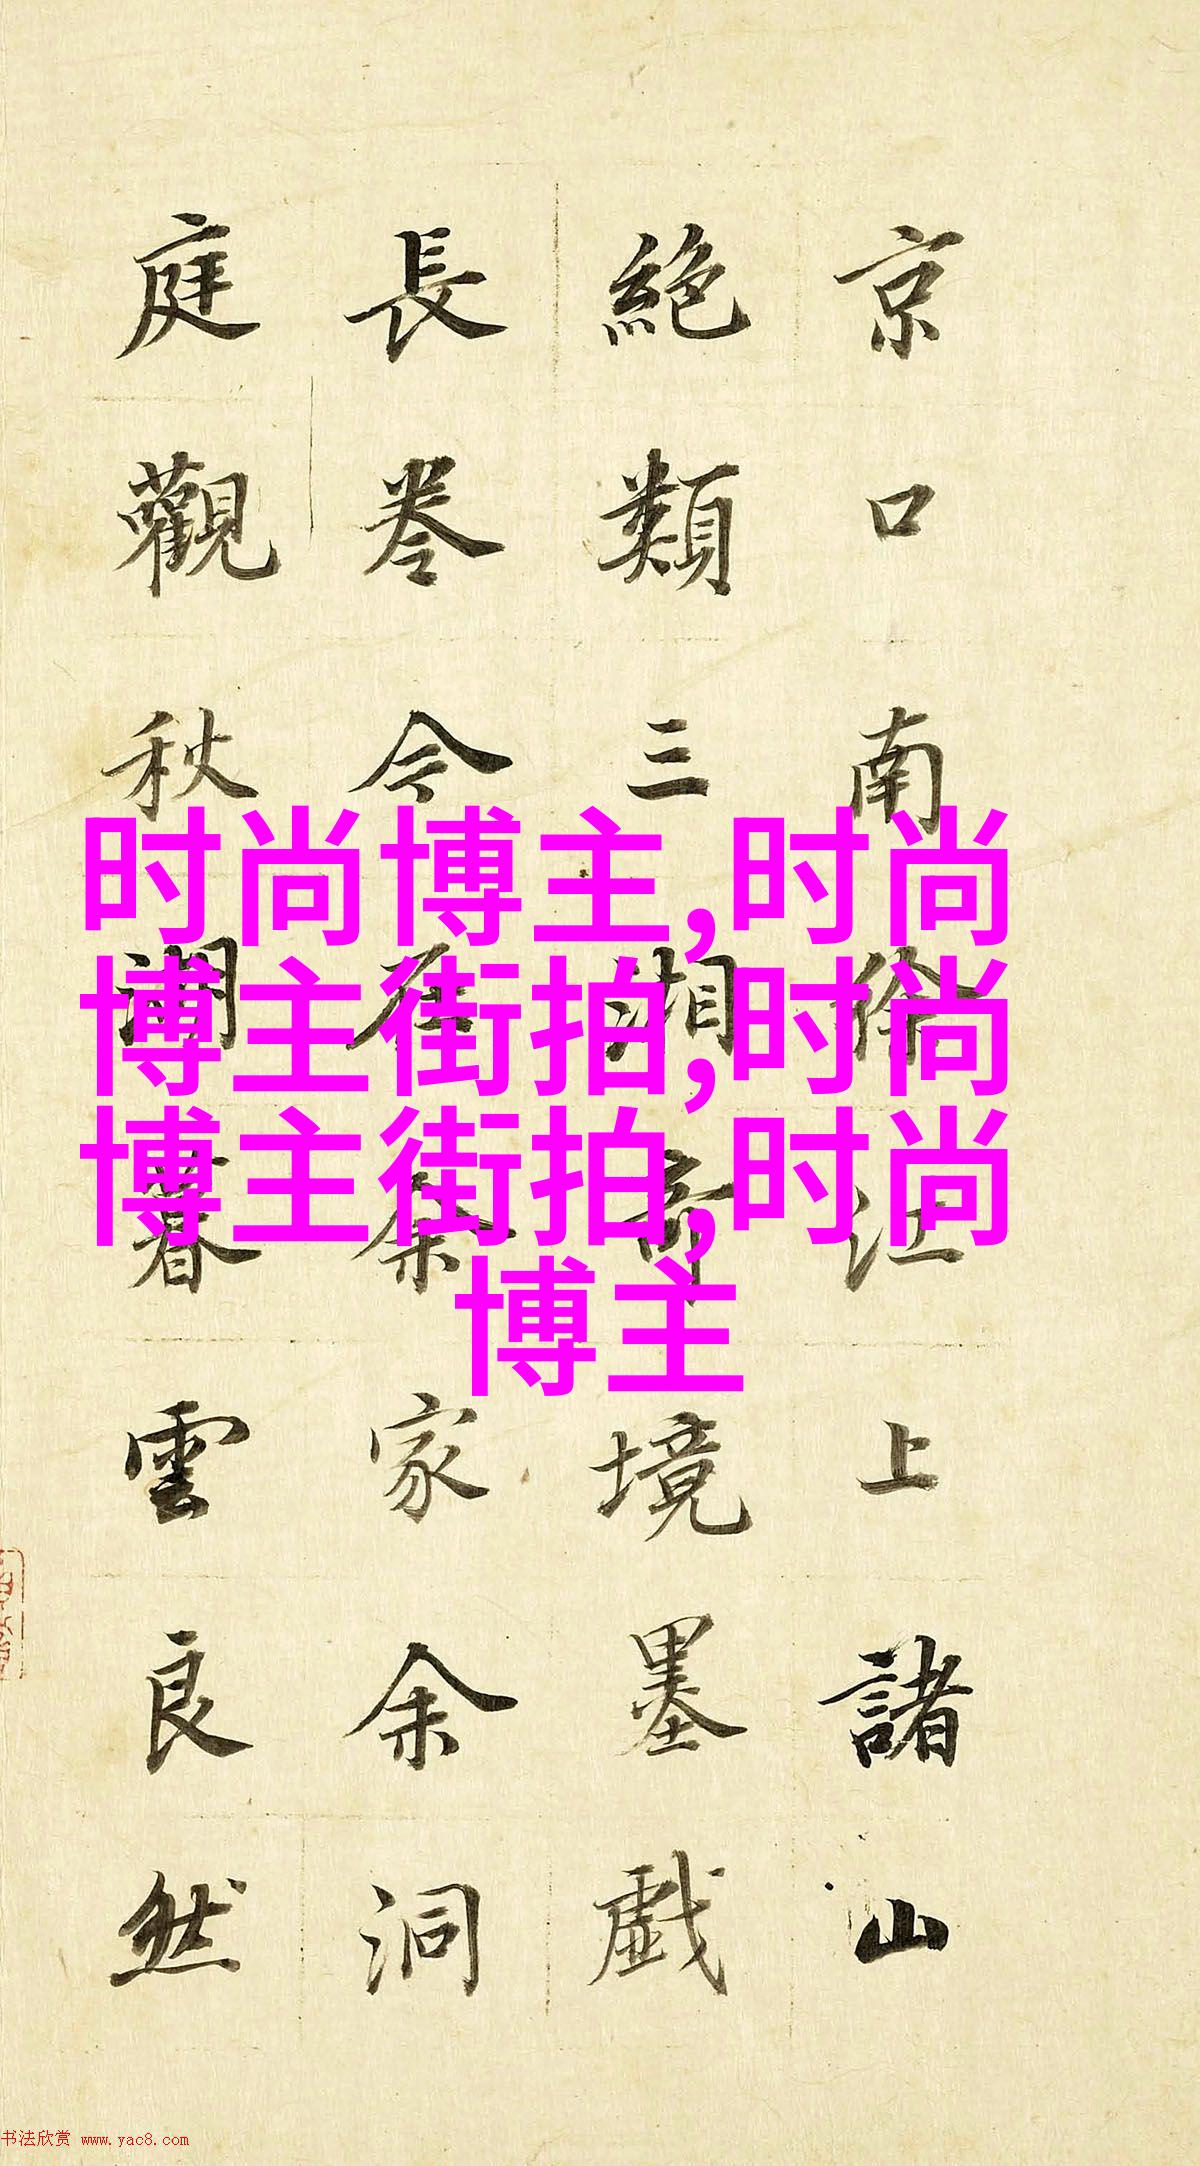 京口南徐江上諸山
絶類三湘奇境墨戲
長卷今在余家余洞
庭觀秋湖暮雲良然
时尚博主,时尚
博主街拍,时尚
博主街拍,时尚
博主
书法欣赏 www.yac8.com